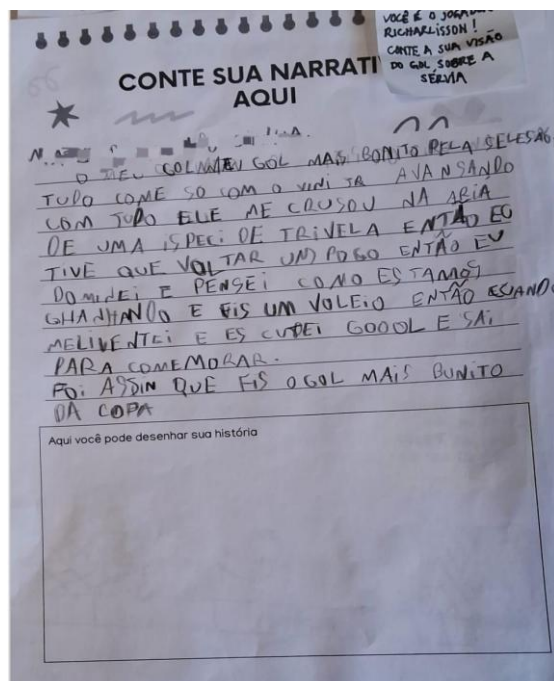 VOCÊ É O JOGADOR
RICHARLISSON!
CONTE A SUA VISÃO
DO GOL SOBRE A
SÉRVIA
CONTE SUA NARRATI
AQUI
O MEU GOL MAIS BONITO PELA SELESÃO
TUDO COME SO COM O VINI JR AVANSANDO
COM TUDO ELE ME CRUSOU NA ARIA
DE UMA ISPECI DE TRIVELA ENTÃO EU
TIVE QUE VOLTAR UM POGO ENTÃO EU
DOMINEI E PENSEI COMO ESTAMOS
GHANHANDO E FIS UM VOLEIO ENTÃO ESUANDO
MELIVENTEI E ES CUDEI GOOOL E SAI
PARA COMEMORAR.
FOI ASSIN QUE FIS O GOL MAIS BUNITO
DA COPA
Aqui você pode desenhar sua história